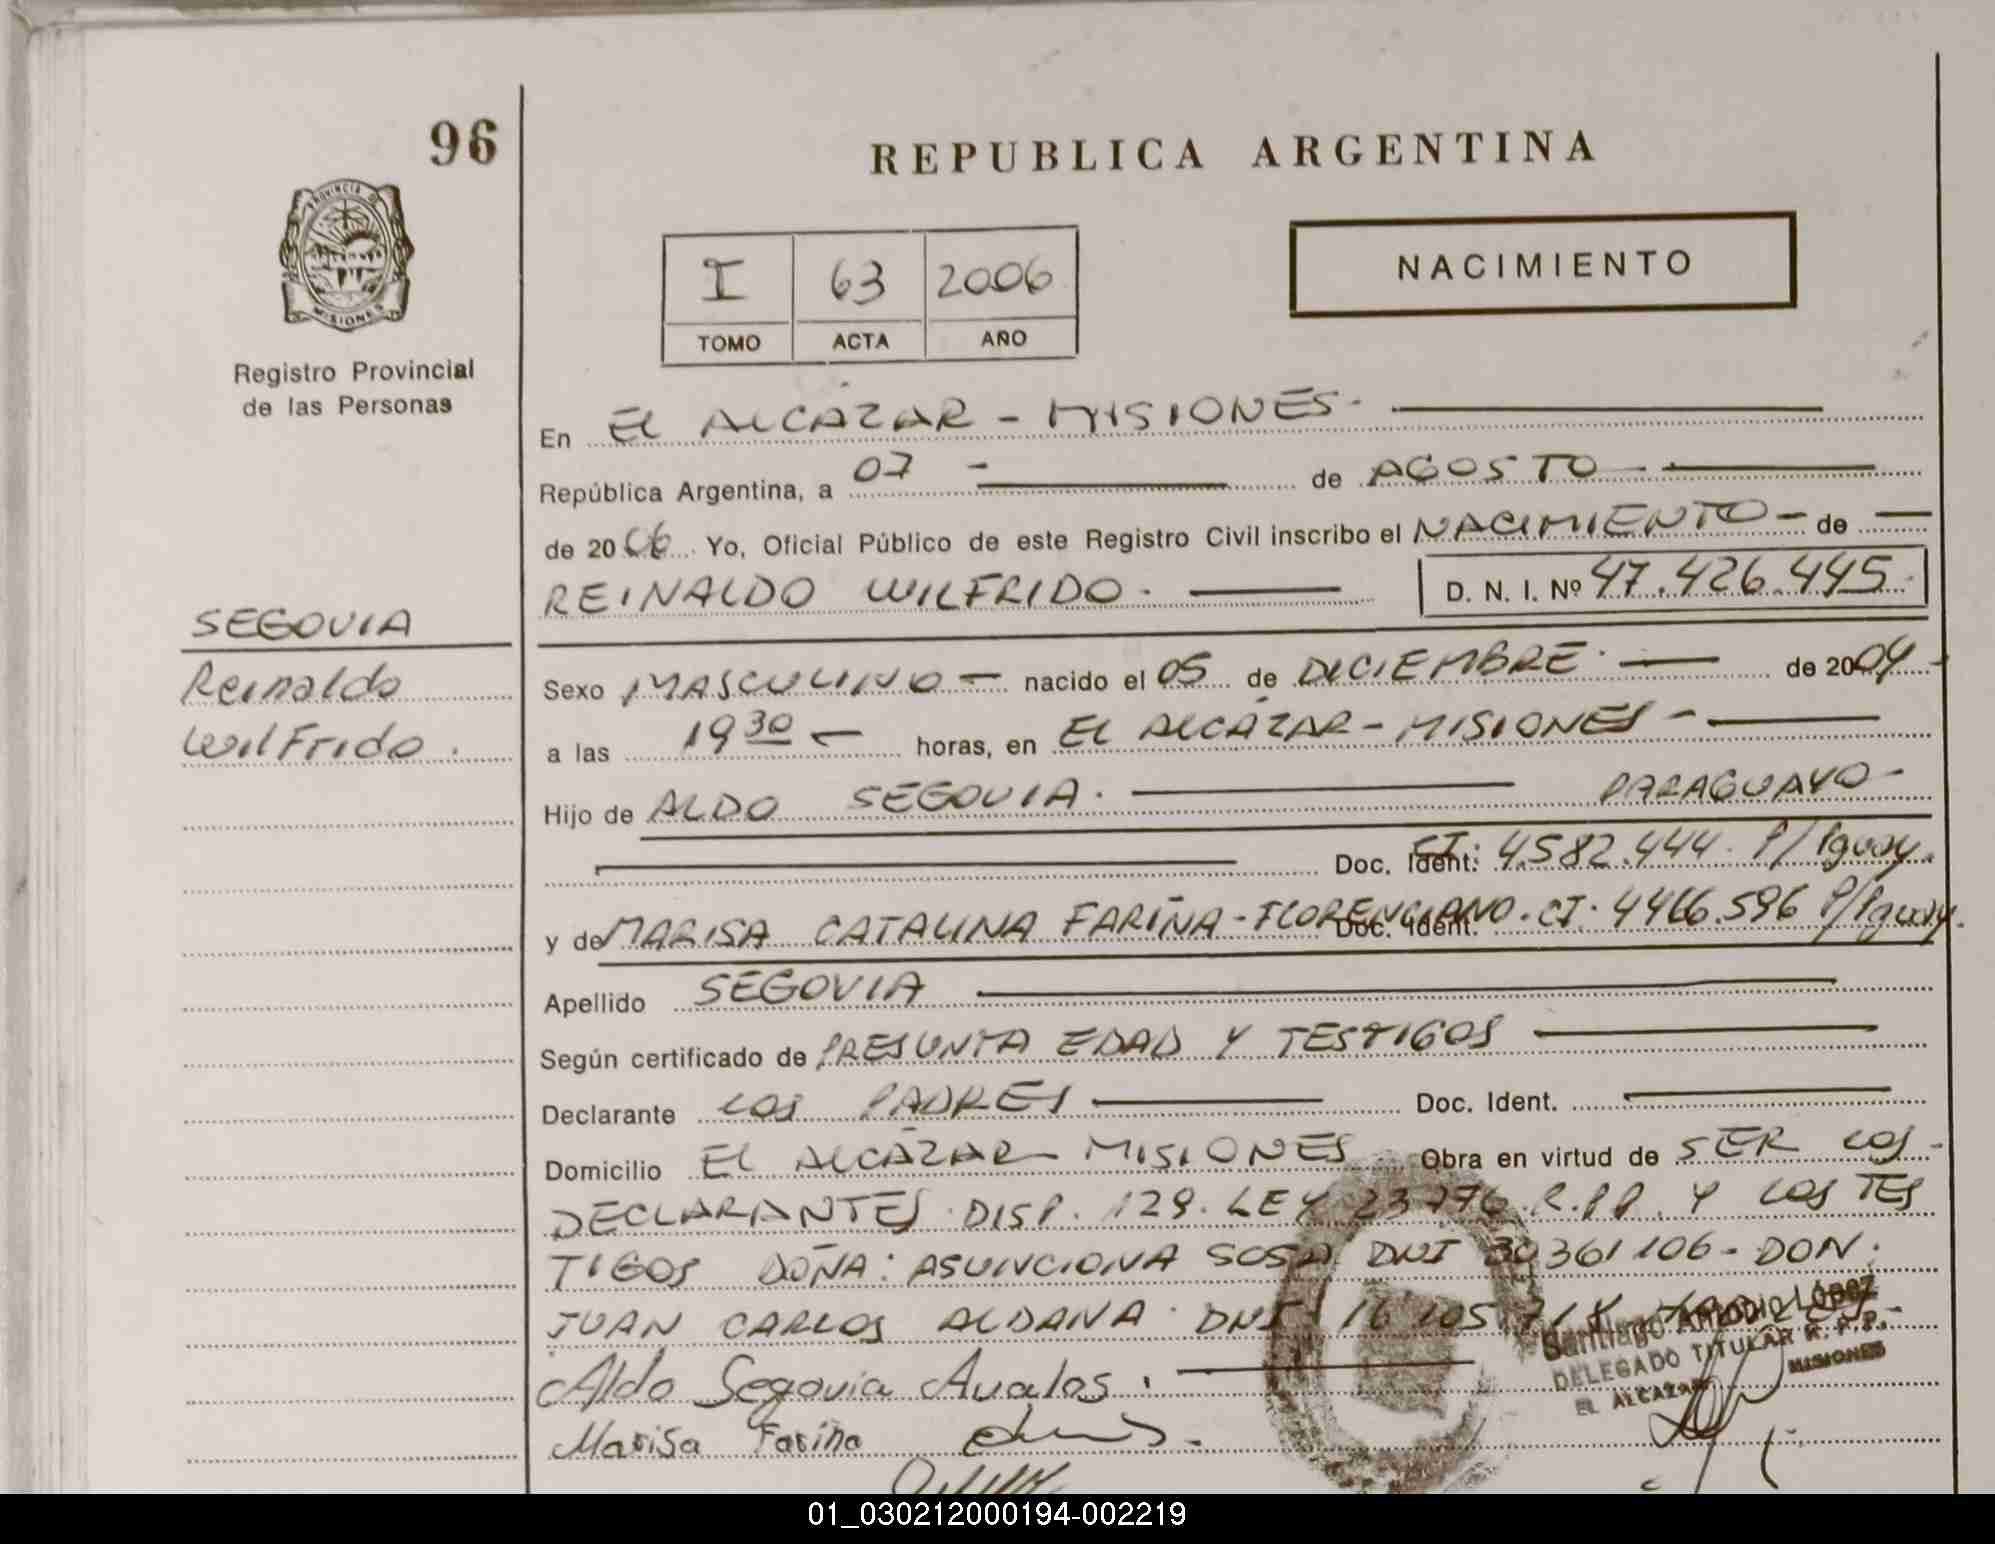 96
REPUBLICA ARGENTINA
PROVINCIA DE
MISIONES
Registro Provincial
de las Personas
I 63 2006
TOMO ACTA AÑO
NACIMIENTO
En EL ALCÁZAR - MISIONES-
República Argentina, a 07 - de AGOSTO
de 2006 Yo, Oficial Público de este Registro Civil inscribo el NACIMIENTO - de
REINALDO WILFRIDO. D. N. I. Nº 47.426.445.
SEGOVIA
Reinaldo
Wilfrido.
Sexo MASCULINO - nacido el 05 de DICIEMBRE. de 2004
a las 19 30 - horas, en EL ALCÁZAR - MISIONES -
Hijo de ALDO SEGOVIA. PARAGUAYO-
Doc. Ident: CI: 4.582.444. P/Pguay.
y de MARISA CATALINA FARIÑA - FLORENCIANO. Doc. Ident. CI. 4466.596 P/Pguay.
Apellido SEGOVIA
Según certificado de PRESUNTA EDAD Y TESTIGOS
Declarante LOS PADRES Doc. Ident.
Domicilio EL ALCÁZAR - MISIONES Obra en virtud de SER LOS
DECLARANTES. DISP. 129. LEY 23776. R.P.P. Y LOS TES
TIGOS DOÑA: ASUNCIONA SOSA DNI 30361106 - DON.
JUAN CARLOS ALDANA. DNI 16105
Santiago Antonio LÓPEZ
DELEGADO TITULAR R.P.P.
EL ALCAZAR MISIONES
Aldo Segovia Avalos.
Marisa Fariña
01_030212000194-002219